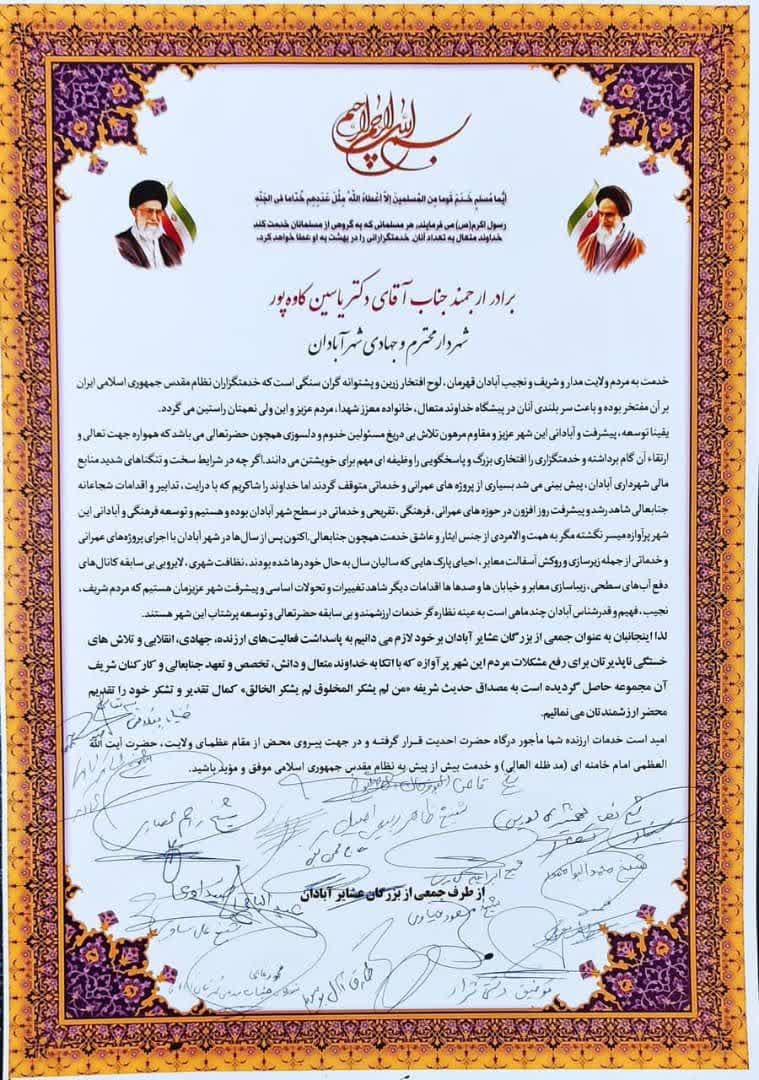 بسم الله الرحمن الرحیم
أیُّما مُسلمٍ خَـدَمَ قَوما مِن المُسلمینَ اِلاّ اَعْطاهُ اللّهُ مِثْلَ عَدَدِهِم خُدّاما فی الجَنَّهِ
رسول اکرم(ص) می فرمایند، هر مسلمانی که به گروهی از مسلمانان خدمت کند،
خداوند متعال به تعداد آنان، خدمتگزارانی را در بهشت به او عطا خواهد کرد.
برادر ارجمند جناب آقای دکتر یاسین کاوه پور
شهردار محترم و جهادی شهر آبادان
خدمت به مردم ولایت مدار و شریف و نجیب آبادان قهرمان، لوح افتخار زرین و پشتوانه گران سنگی است که خدمتگزاران نظام مقدس جمهوری اسلامی ایران
بر آن مفتخر بوده و باعث سر بلندی آنان در پیشگاه خداوند متعال، خانواده معزز شهدا، مردم عزیز و این ولی نعمتان راستین می گردد.
یقینا توسعه، پیشرفت و آبادانی این شهر عزیز و مقاوم مرهون تلاش بی دریغ مسئولین خدوم و دلسوزی همچون حضرتعالی می باشد که همواره جهت تعالی و
ارتقاء آن گام برداشته و خدمتگزاری را افتخاری بزرگ و پاسخگویی را وظیفه ای مهم برای خویشتن می دانند.اگر چه در شرایط سخت و تنگناهای شدید منابع
مالی شهرداری آبادان، پیش بینی می شد بسیاری از پروژه های عمرانی و خدماتی متوقف گردند اما خداوند را شاکریم که با درایت، تدابیر و اقدامات شجاعانه
جنابعالی شاهد رشد و پیشرفت روز افزون در حوزه های عمرانی، فرهنگی، تفریحی و خدماتی در سطح شهر آبادان بوده و هستیم و توسعه فرهنگی و آبادانی این
شهر پرآوازه میسر نگشته مگر به همت والامردی از جنس ایثار و عاشق خدمت همچون جنابعالی.اکنون پس از سال‌ها در شهر آبادان با اجرای پروژه‌های عمرانی
و خدماتی از جمله زیرسازی و روکش آسفالت معابر، احیای پارک هایی که سالیان سال به حال خود رها شده بودند، نظافت شهری، لایروبی بی سابقه کانال‌های
دفع آب‌های سطحی، زیباسازی معابر و خیابان ها و صدها ها اقدامات دیگر شاهد تغییرات و تحولات اساسی و پیشرفت شهر عزیزمان هستیم که مردم شریف،
نجیب، فهیم و قدرشناس آبادان چند ماهی است به عینه نظاره گر خدمات ارزشمند و بی سابقه حضرتعالی و توسعه پرشتاب این شهر هستند.
لذا اینجانبان به عنوان جمعی از بزرگان عشایر آبادان بر خود لازم می دانیم به پاسداشت فعالیت‌های ارزنده، جهادی، انقلابی و تلاش های
خستگی ناپذیرتان برای رفع مشکلات مردم این شهر پر آوازه که با اتکا به خداوند متعال و دانش، تخصص و تعهد جنابعالی و کارکنان شریف
آن مجموعه حاصل گردیده است به مصداق حدیث شریفه «من لم یشکر المخلوق لم یشکر الخالق» کمال تقدیر و تشکر خود را تقدیم
محضر ارزشمندتان می نمائیم.
امید است خدمات ارزنده شما مأجور درگاه حضرت احدیت قرار گرفته و در جهت پیروی محض از مقام عظمای ولایت، حضرت آیت الله
العظمی امام خامنه ای (مد ظله العالی) و خدمت بیش از پیش به نظام مقدس جمهوری اسلامی موفق و مؤید باشید.
شیخ طاهر
شیخ ابراهیم
شیخ مسعود
از طرف جمعی از بزرگان عشایر آبادان